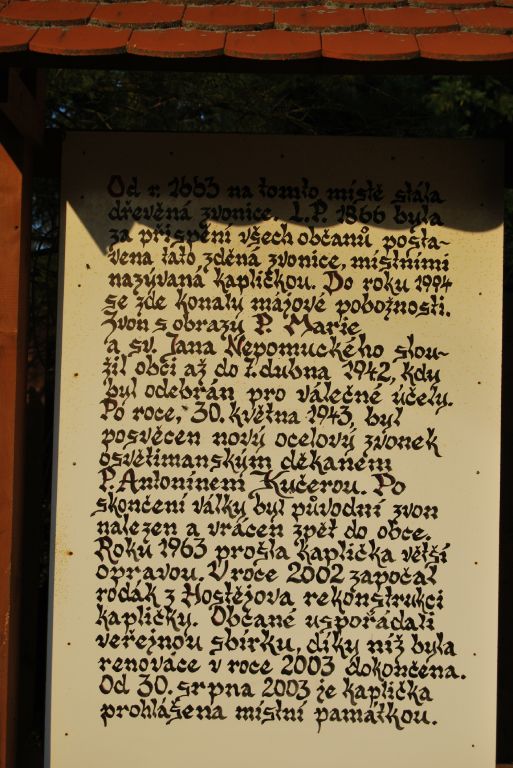 Od r. 1663 na tomto místě stála
dřevěná zvonice. L.P. 1866 byla
za přispění všech občanů posta-
vena tato zděná zvonice, místními
nazývaná kapličkou. Do roku 1994
se zde konaly májové pobožnosti.
Zvon s obrazy P. Marie
a sv. Jana Nepomuckého slou-
žil obci až do 7. dubna 1942, kdy
byl odebrán pro válečné účely.
Po roce, 30. května 1943, byl
posvěcen nový ocelový zvonek
osvětimanským děkanem
P. Antonínem Kučerou. Po
skončení války byl původní zvon
nalezen a vrácen zpět do obce.
Roku 1963 prošla kaplička větší
opravou. V roce 2002 započal
rodák z Hostějova rekonstrukci
kapličky. Občané uspořádali
veřejnou sbírku, díky níž byla
renovace v roce 2003 dokončena.
Od 30. srpna 2003 je kaplička
prohlášena místní památkou.